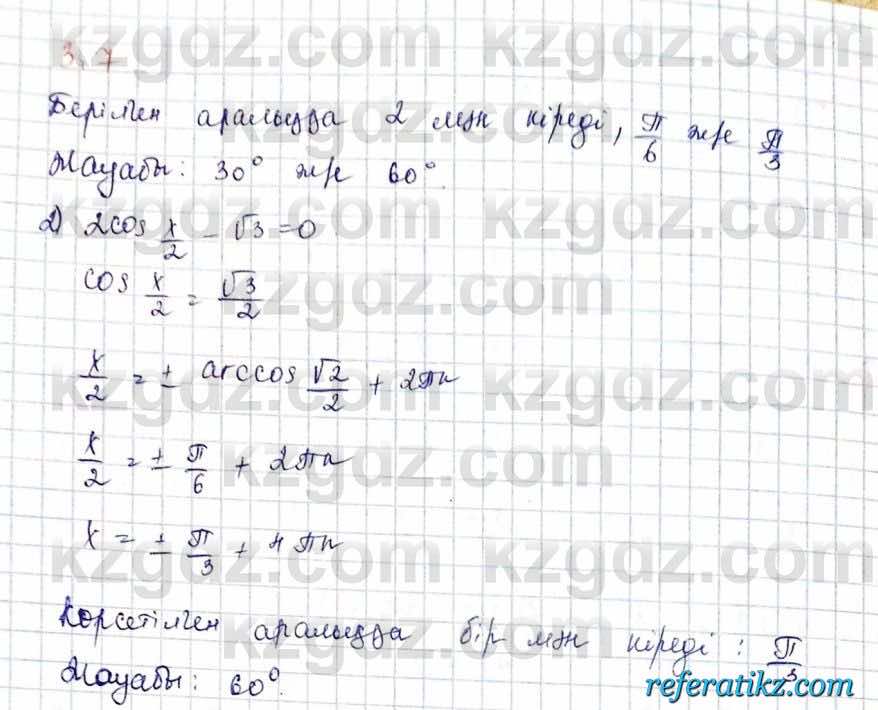 3.7
Берілген аралықда 2 мән кіреді, π/6 және π/3
Жауабы: 30° және 60°.
2) 2cos x/2 - √3 = 0
cos x/2 = √3/2
x/2 = ± arccos √2/2 + 2πn
x/2 = ± π/6 + 2πn
x = ± π/3 + 4πn
Көрсетілген аралықда бір мән кіреді: π/3
Жауабы: 60°.
kzgdz.com
referatikz.com